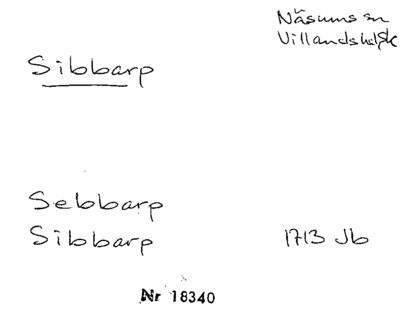 Näsums sn
Villands hd, Sk
Sibbarp
Sebbarp
Sibbarp 1713 Jb
Nr 18340